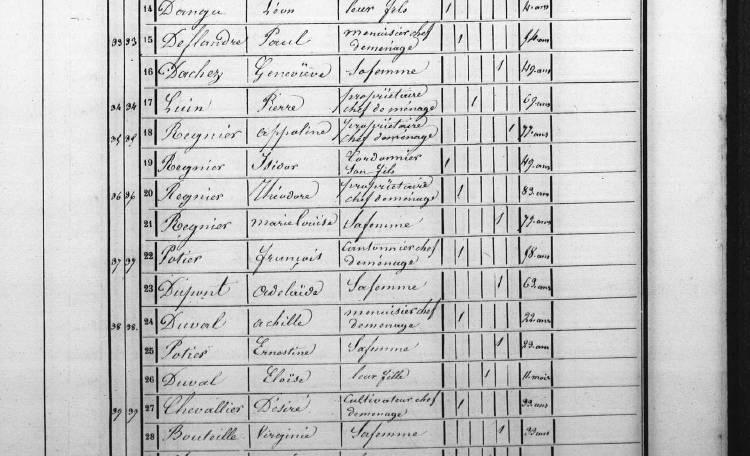 14 Dangu Léon leur fils 1 4. ans
33 33 15 Deflandre Paul menuisier chef deménage 1 54 ans
16 Dachez Geneviève Safemme 1 49. ans
34 34 17 Luin Pierre propriétaire chef de ménage 1 69. ans
35 35 18 Regnier appoline propriétaire chef deménage 1 77. ans
19 Regnier Isidor Cordonnier Son fils 1 49. ans
36 36 20 Regnier Théodore propriétaire chef deménage 1 83. ans
21 Regnier marie Louise Safemme 1 79. ans
37 37 22 Potier françois cantonnier chef deménage 1 58. ans
23 Dupont adelaïde Safemme 1 62. ans
38 38. 24 Duval achille menuisier chef deménage 1 22. ans
25 Potier Ernestine Safemme 1 23. ans
26 Duval Eloïse leur fille 1 11. mois
39 39 27 Chevallier Désiré Cultivateur chef deménage 1 33. ans
28 Bouteille Virginie Safemme 1 33. ans